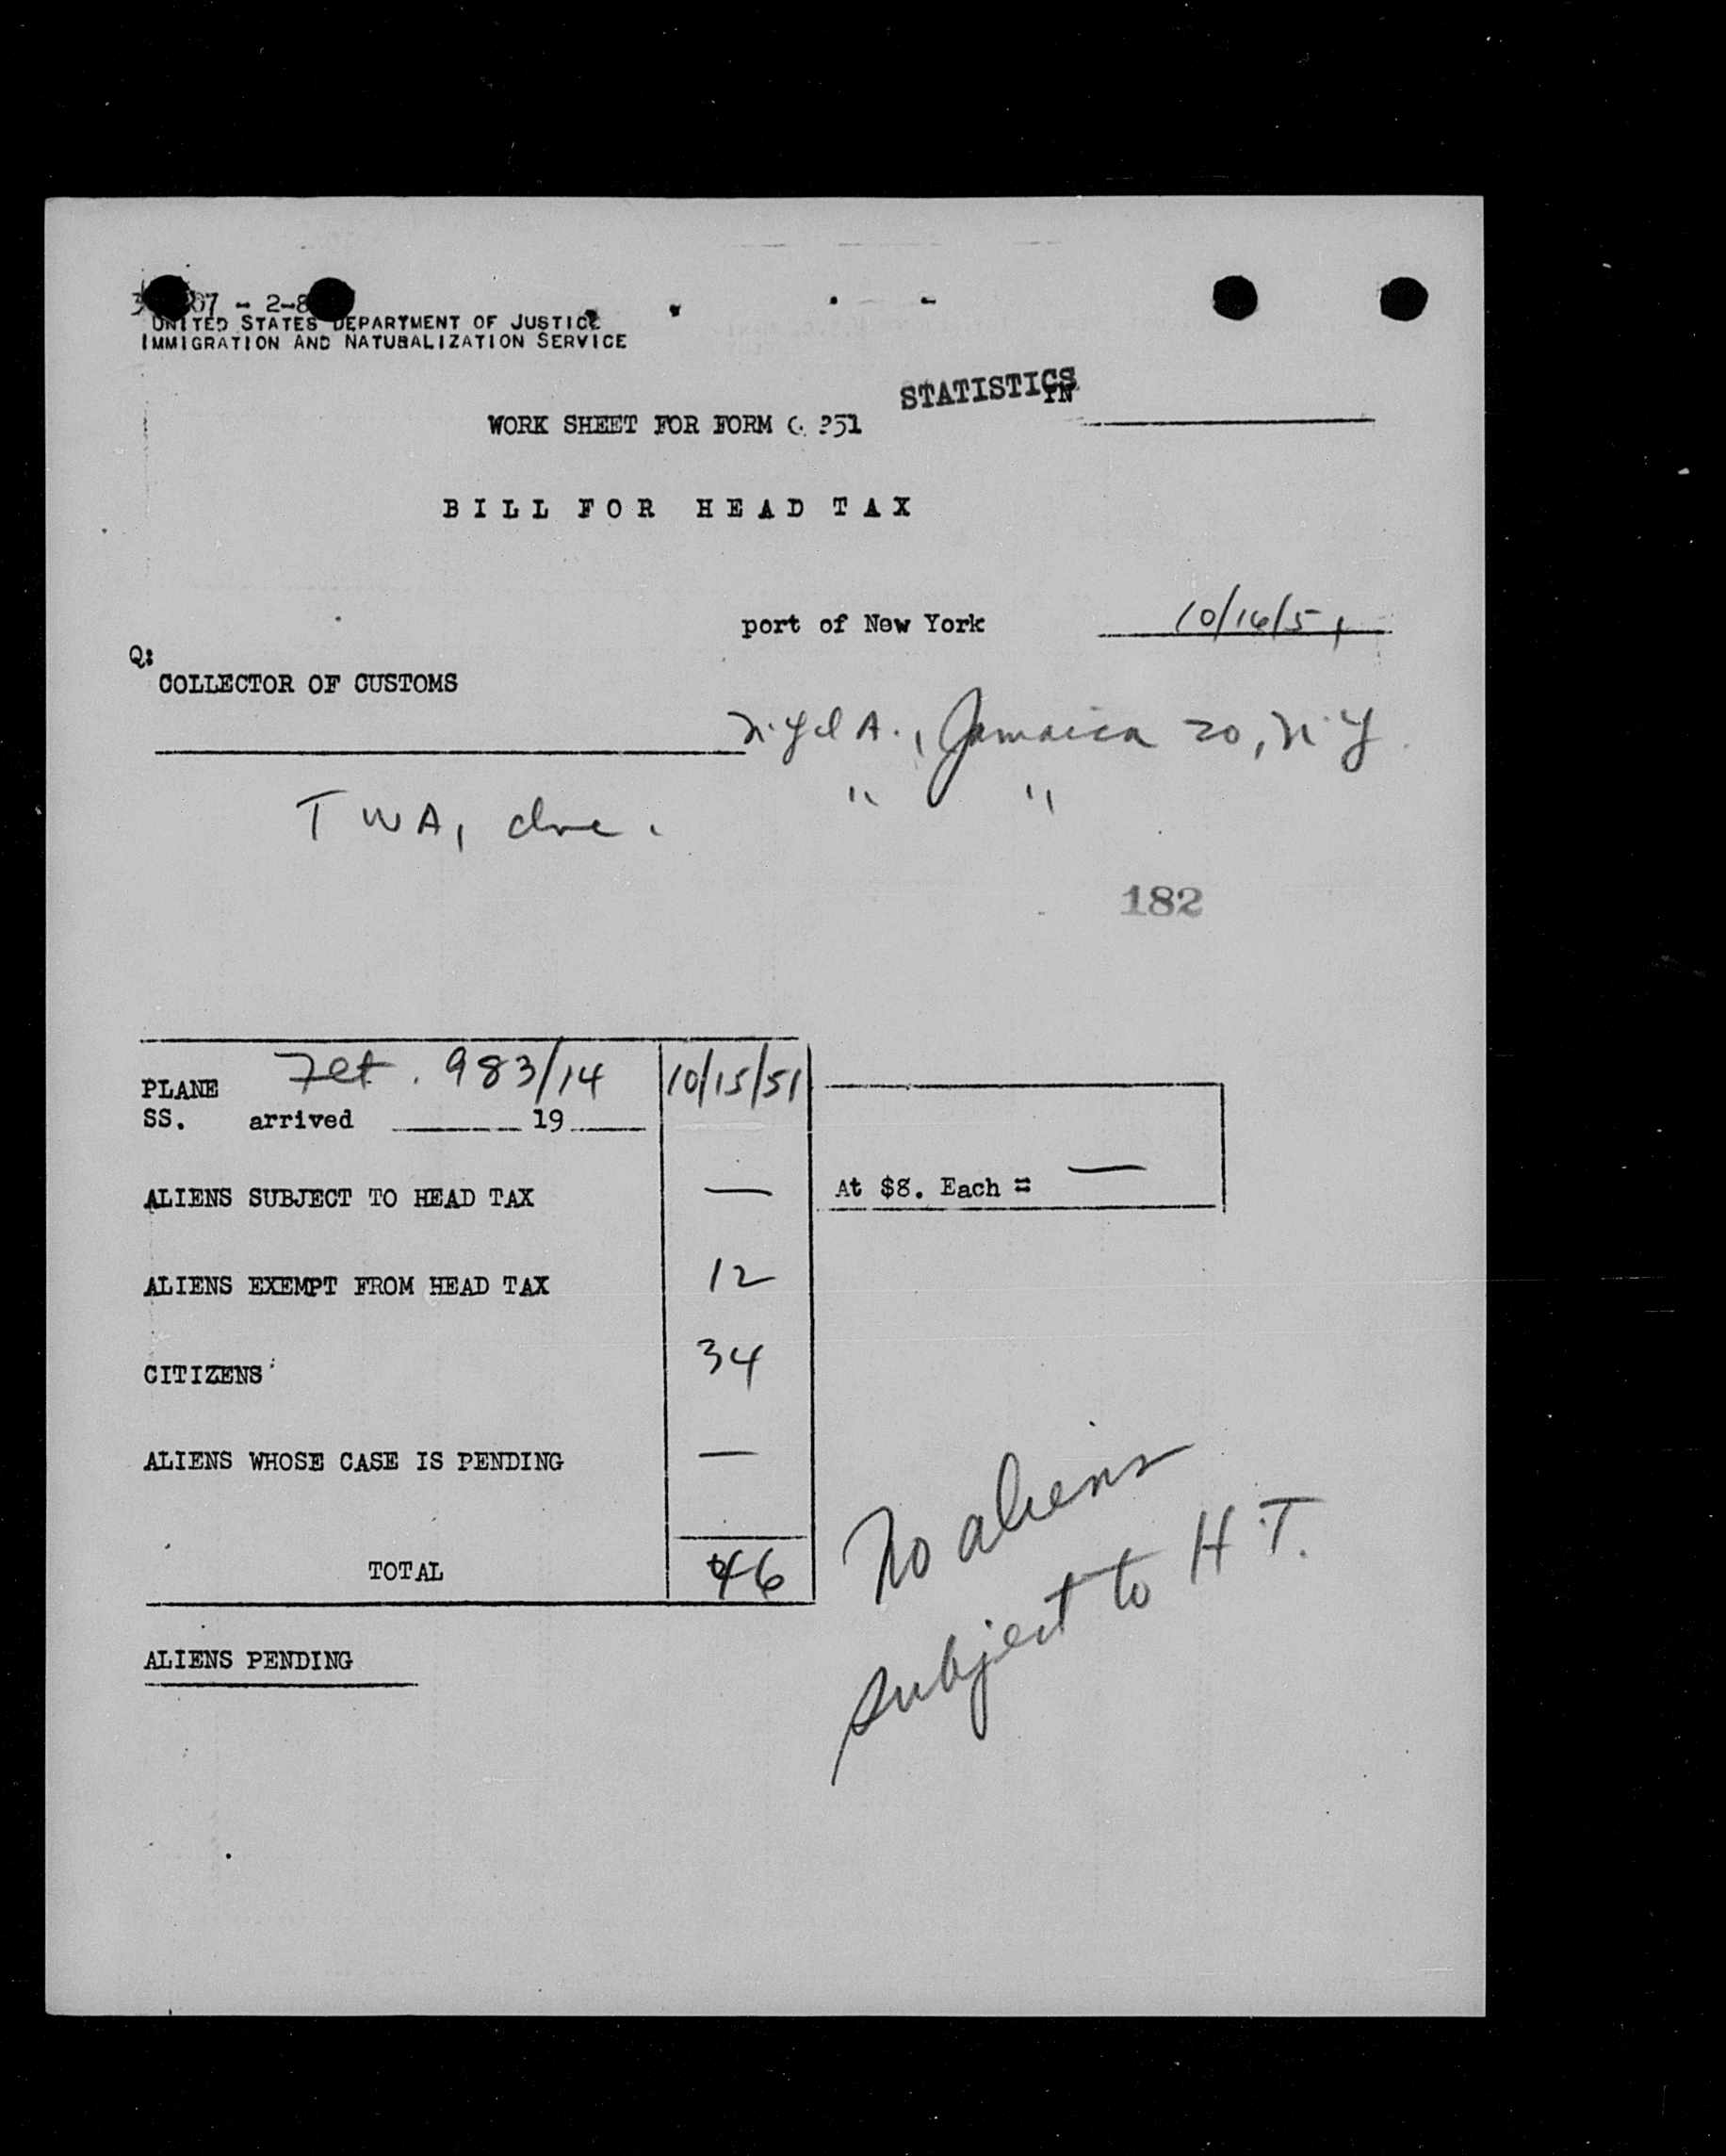 07 - 2-8
UNITED STATES DEPARTMENT OF JUSTICE
IMMIGRATION AND NATURALIZATION SERVICE
STATISTICS
IN
WORK SHEET FOR FORM 351
BILL FOR HEAD TAX
port of New York 10/16/51
COLLECTOR OF CUSTOMS
A., Jamaica 20, N.Y.
TWA, " "
182
PLANE Flt. 983/14 10/15/51
SS. arrived 19
ALIENS SUBJECT TO HEAD TAX — At $8. Each = —
ALIENS EXEMPT FROM HEAD TAX 12
CITIZENS 34
ALIENS WHOSE CASE IS PENDING —
TOTAL 46
No aliens
subject to H.T.
ALIENS PENDING